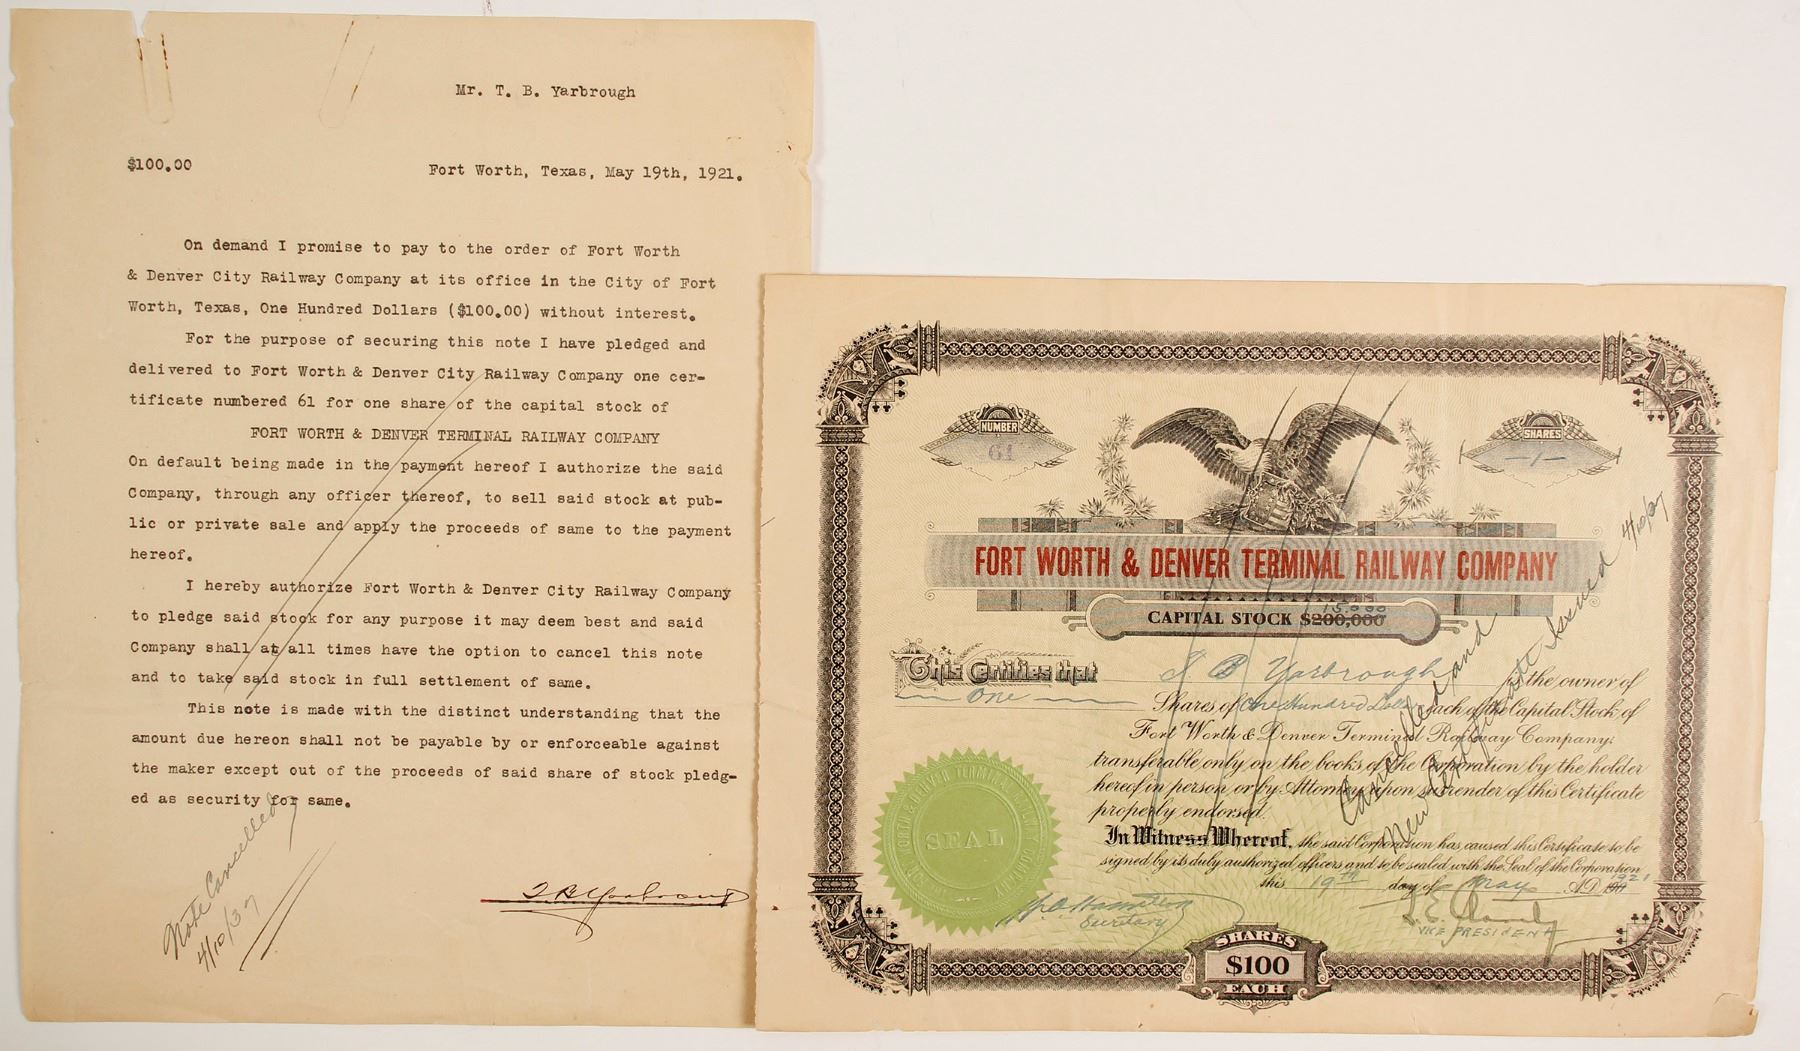 Mr. T. B. Yarbrough
$100.00 Fort Worth, Texas, May 19th, 1921.
On demand I promise to pay to the order of Fort Worth
& Denver City Railway Company at its office in the City of Fort
Worth, Texas, One Hundred Dollars ($100.00) without interest.
For the purpose of securing this note I have pledged and
delivered to Fort Worth & Denver City Railway Company one cer-
tificate numbered 61 for one share of the capital stock of
FORT WORTH & DENVER TERMINAL RAILWAY COMPANY
On default being made in the payment hereof I authorize the said
Company, through any officer thereof, to sell said stock at pub-
lic or private sale and apply the proceeds of same to the payment
hereof.
I hereby authorize Fort Worth & Denver City Railway Company
to pledge said stock for any purpose it may deem best and said
Company shall at all times have the option to cancel this note
and to take said stock in full settlement of same.
This note is made with the distinct understanding that the
amount due hereon shall not be payable by or enforceable against
the maker except out of the proceeds of said share of stock pledg-
ed as security for same.
Note Cancelled
4/10/37
T B Yarbrough
NUMBER
61
SHARES
-1-
FORT WORTH & DENVER TERMINAL RAILWAY COMPANY
15,000
CAPITAL STOCK $200,000
This Certifies that T. B. Yarbrough is the owner of
One Shares of One Hundred Dollars each of the Capital Stock of
Fort Worth & Denver Terminal Railway Company
transferable only on the books of the Corporation by the holder
hereof in person or by Attorney upon surrender of this Certificate
properly endorsed.
In Witness Whereof, the said Corporation has caused this Certificate to be
signed by its duly authorized officers and to be sealed with the Seal of the Corporation
this 19th day of May A.D. 1921
Cancelled and
New Certificate Issued 4/10/37
FORT WORTH & DENVER TERMINAL RAILWAY COMPANY
SEAL
Hamilton
Secretary
VICE PRESIDENT
SHARES
$100
EACH